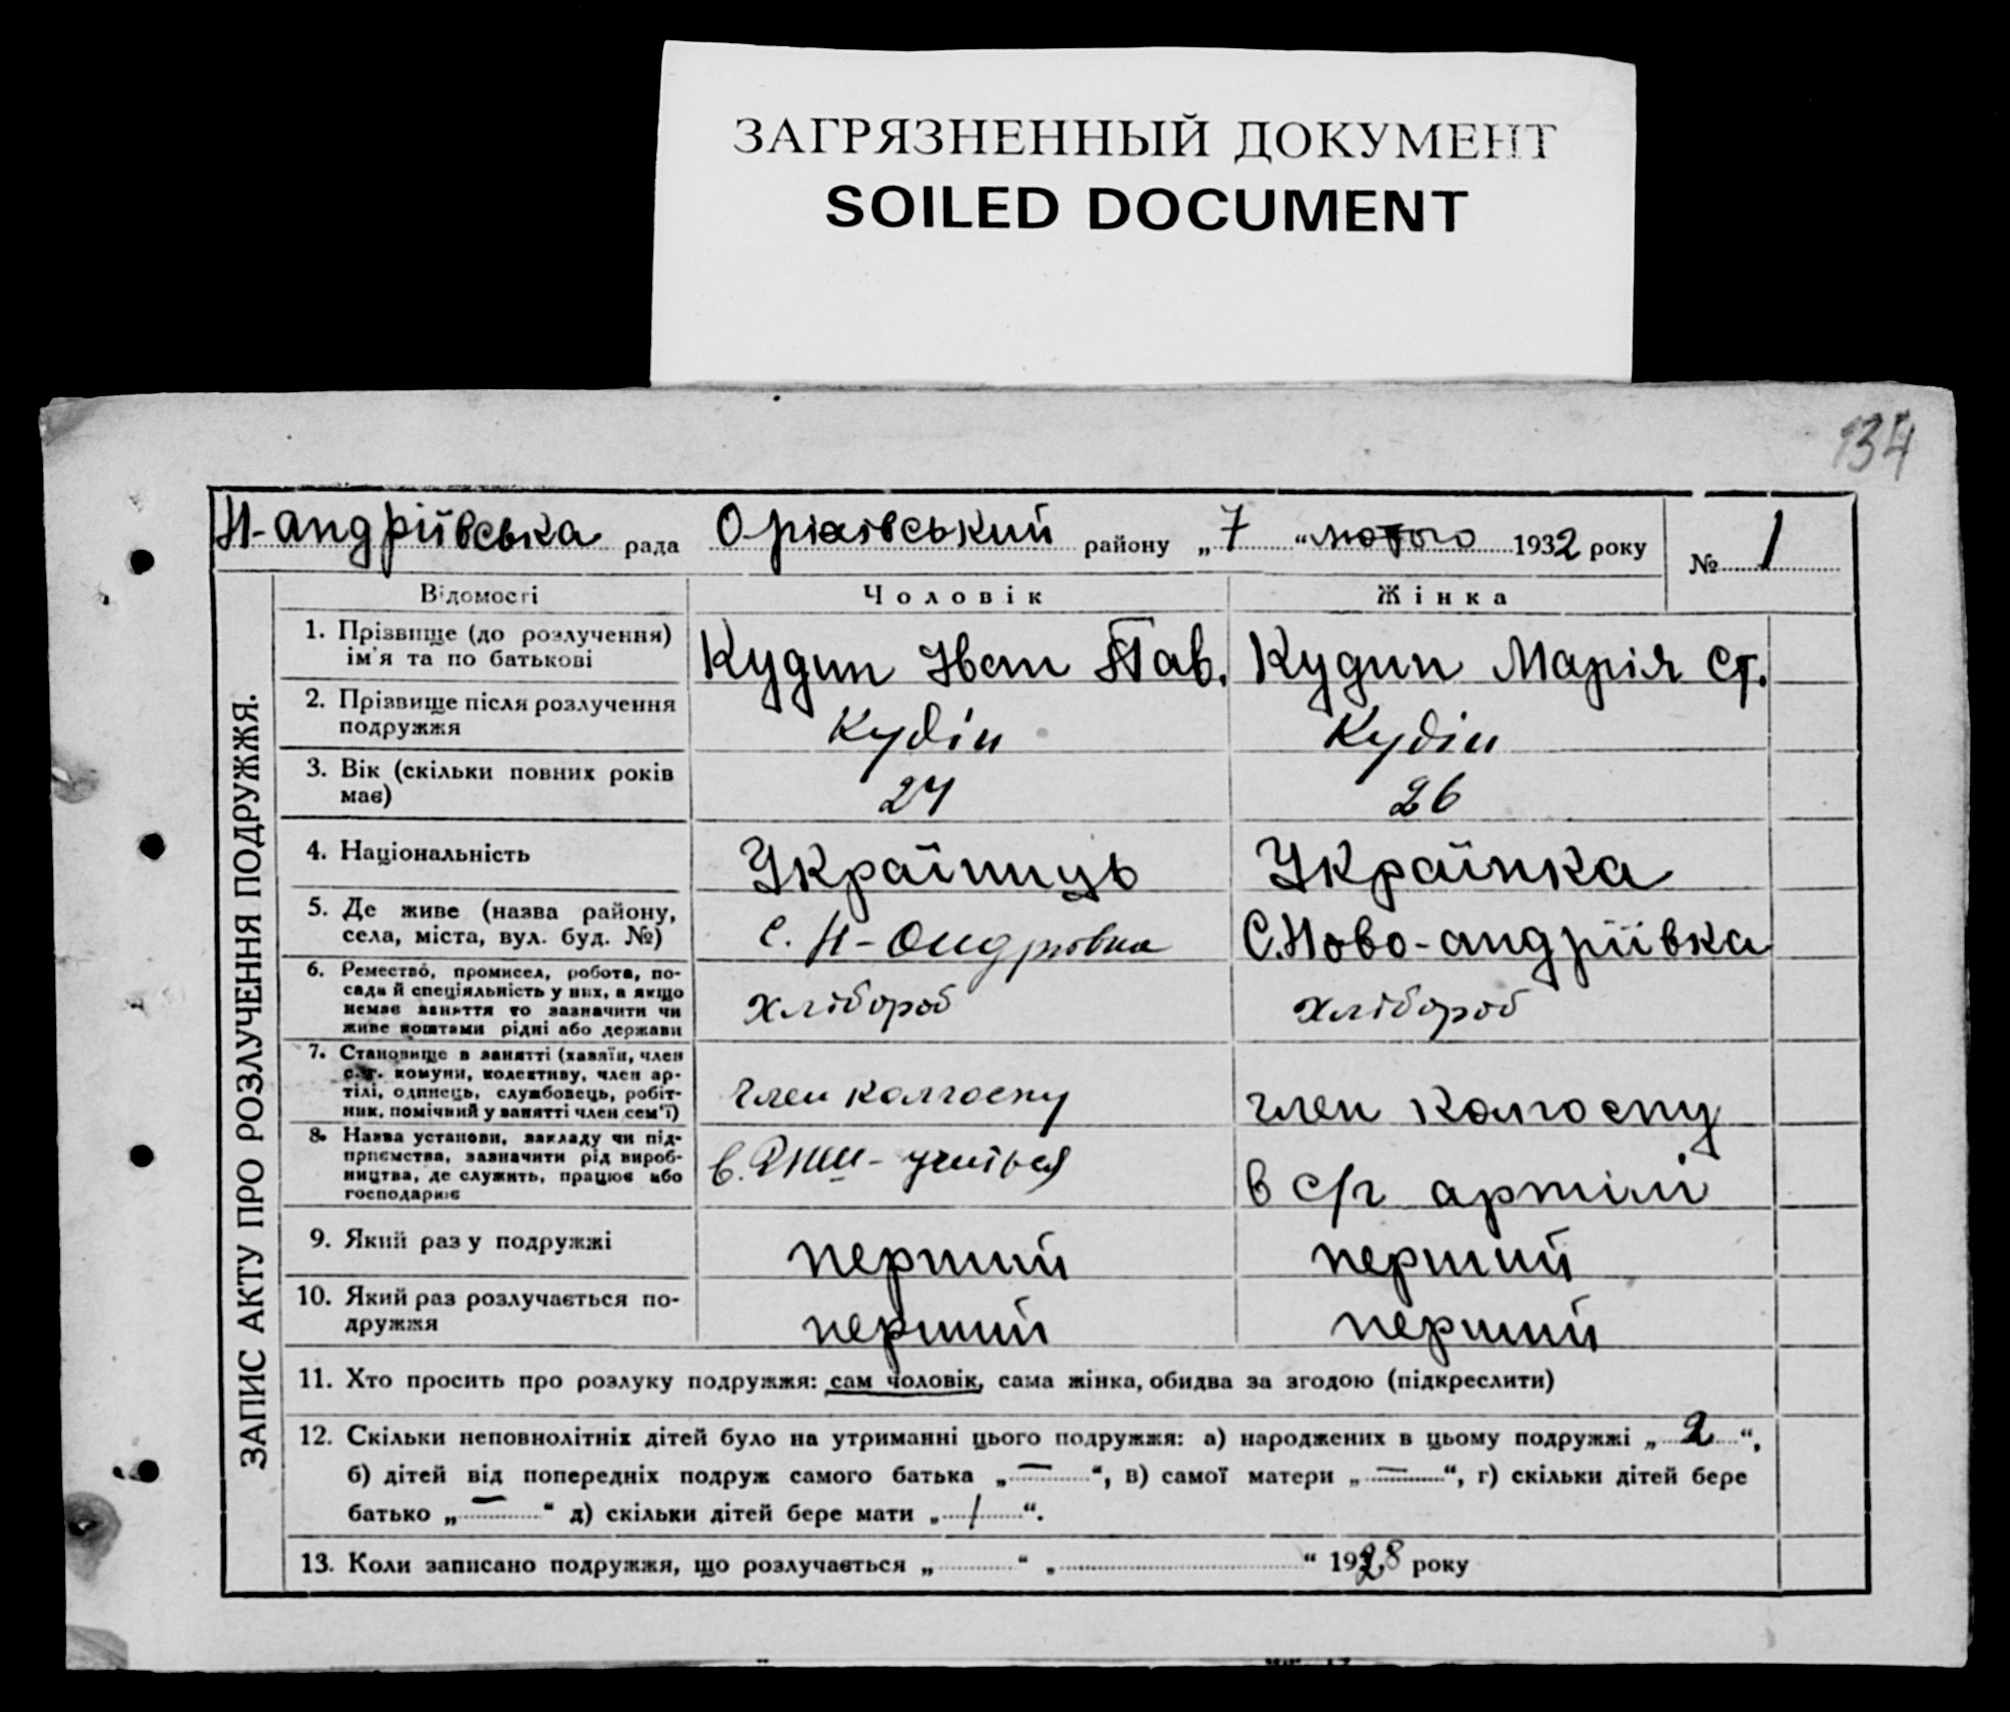 ЗАГРЯЗНЕННЫЙ ДОКУМЕНТ
SOILED DOCUMENT
134
Н-андріївська рада Оріхівський району „7“ лютого 1932 року № 1
ЗАПИС АКТУ ПРО РОЗЛУЧЕННЯ ПОДРУЖЖЯ.
Відомості Чоловік Жінка
1. Прізвище (до розлучення)
ім'я та по батькові
Кудин Іван Пав. Кудин Марія Ст.
2. Прізвище після розлучення
подружжя
Кудін Кудін
3. Вік (скільки повних років
має)
24 26
4. Національність Українць Українка
5. Де живе (назва району,
села, міста, вул. буд. №)
с. Н- С.Ново-андріївка
6. Ремество, промисел, робота, по-
сада й спеціяльність у них, а якщо
немає заняття то зазначити чи
живе коштами рідні або держави
хлібороб хлібороб
7. Становище в занятті (хазяїн, член
с.-г. комуни, колективу, член ар-
тілі, одинець, службовець, робіт-
ник, помічний у занятті член сем'ї)
член колгоспу член колгоспу
8. Назва установи, закладу чи під-
приємства, зазначити рід вироб-
ництва, де служить, працює або
господарює
в. учиться в с/г артілі
9. Який раз у подружжі перший перший
10. Який раз розлучається по-
дружжя
перший перший
11. Хто просить про розлуку подружжя: сам чоловік, сама жінка, обидва за згодою (підкреслити)
12. Скільки неповнолітніх дітей було на утриманні цього подружжя: а) народжених в цьому подружжі „2“,
б) дітей від попередніх подруж самого батька „—“, в) самої матери „—“, г) скільки дітей бере
батько „—“ д) скільки дітей бере мати „1“.
13. Коли записано подружжя, що розлучається „ “ „ “ 1928 року